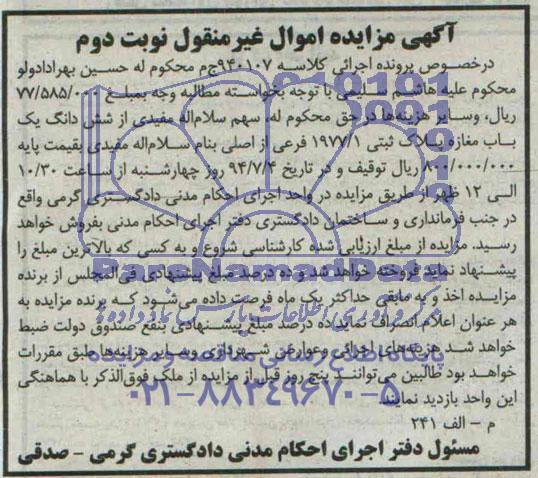 آگهی مزایده اموال غیرمنقول نوبت دوم
درخصوص پرونده اجرائی کلاسه ۹۴۰۱۰۷ج‌م محکوم له حسین بهرادادولو
محکوم علیه هاشم سلیمی با توجه بخواسته مطالبه وجه بمبلغ ۷۷/۵۸۵/۰۰۰
ریال، وسایر هزینه‌ها در حق محکوم له، سهم سلام‌اله مفیدی از شش دانگ یک
باب مغازه پلاک ثبتی ۱۹۷۷/۱ فرعی از اصلی بنام سلام‌اله مفیدی بقیمت پایه
۸۰۰/۰۰۰/۰۰۰ ریال توقیف و در تاریخ ۹۴/۷/۴ روز چهارشنبه از ساعت ۱۰/۳۰
الی ۱۲ ظهر از طریق مزایده در واحد اجرای احکام مدنی دادگستری گرمی واقع
در جنب فرمانداری و ساختمان دادگستری دفتر اجرای احکام مدنی بفروش خواهد
رسید. مزایده از مبلغ ارزیابی شده کارشناسی شروع و به کسی که بالاترین مبلغ را
پیشنهاد نماید فروخته خواهد شد و ده درصد مبلغ پیشنهادی فی‌المجلس از برنده
مزایده اخذ و به مابقی حداکثر یک ماه فرصت داده می‌شود که برنده مزایده به
هر عنوان اعلام انصراف نماید ده درصد مبلغ پیشنهادی بنفع صندوق دولت ضبط
خواهد شد هزینه‌های اجرائی وعوارض شهرداری وسایر هزینه‌ها طبق مقررات
خواهد بود طالبین می‌توانند پنج روز قبل از مزایده از ملک فوق‌الذکر با هماهنگی
این واحد بازدید نمایند.
م - الف ۲۴۱
مسئول دفتر اجرای احکام مدنی دادگستری گرمی - صدقی
ParsNamadData
پایگاه اطلاع رسانی مناقصه و مزایده
۰۲۱-۸۸۳۴۹۶۷۰-۵